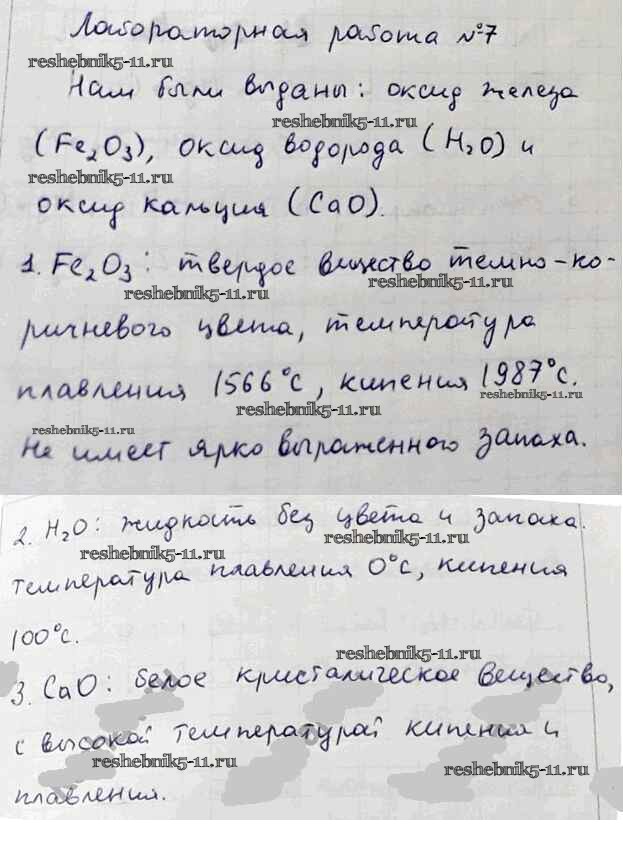 Лабораторная работа №7
reshebnik5-11.ru
Нам были выданы: оксид железа
reshebnik5-11.ru
(Fe₂O₃), оксид водорода (H₂O) и
reshebnik5-11.ru
оксид кальция (CaO).
1. Fe₂O₃: твердое вещество темно-ко-
reshebnik5-11.ru reshebnik5-11.ru
ричневого цвета, температура
плавления 1566°С, кипения 1987°С.
reshebnik5-11.ru reshebnik5-11.ru
reshebnik5-11.ru
Не имеет ярко выраженного запаха.
2. H₂O: жидкость без цвета и запаха.
reshebnik5-11.ru
температура плавления 0°С, кипения
100°С.
reshebnik5-11.ru
3. CaO: белое кристалическое вещество,
с высокой температурай кипения и
reshebnik5-11.ru reshebnik5-11.ru
плавления.